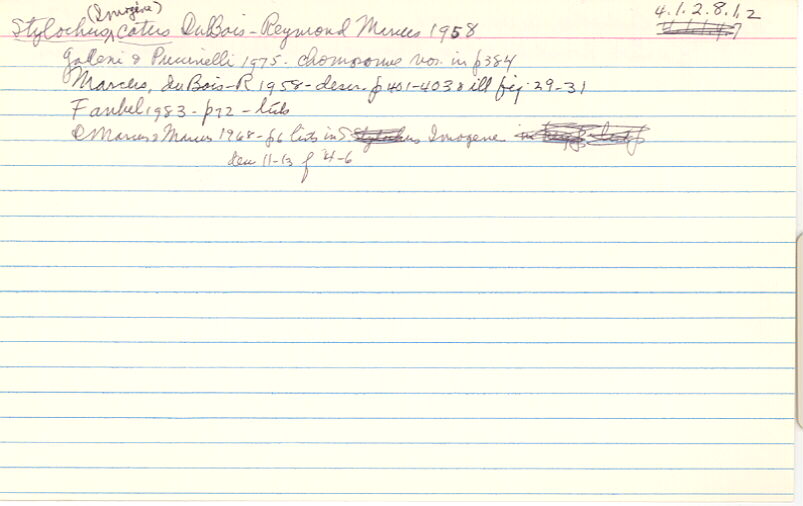 (Imogine) 4.1.2.8.1.2
Stylochus catus DuBois-Reymond Marcus 1958
Galleni & Puccinelli 1975 - chromosome no. in p384
Marcus, duBois-R 1958 - descr p 401-403 & ill fig. 29-31
Faubel 1983 - p72 - lists
& Marcus 1968 - p6 lists in S. Imogene
11-13 f 4-6